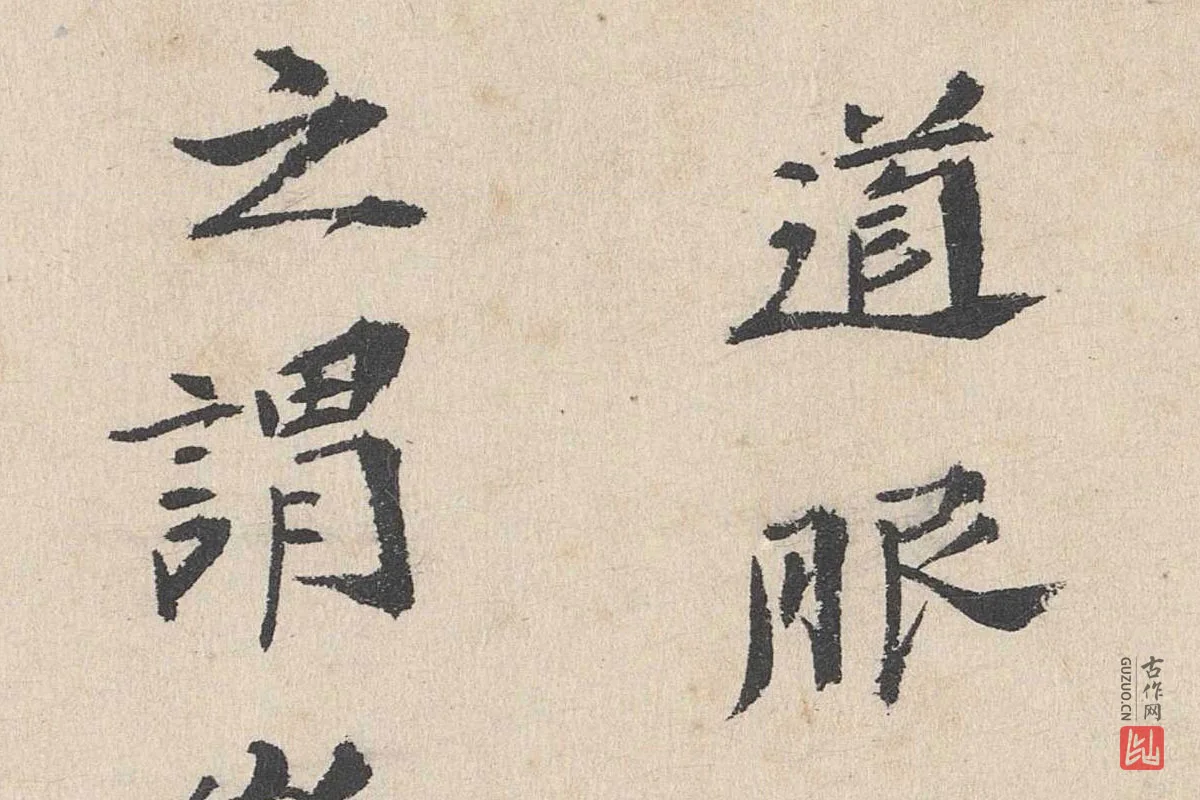 道服
之謂
古作网
GUZUO.CN